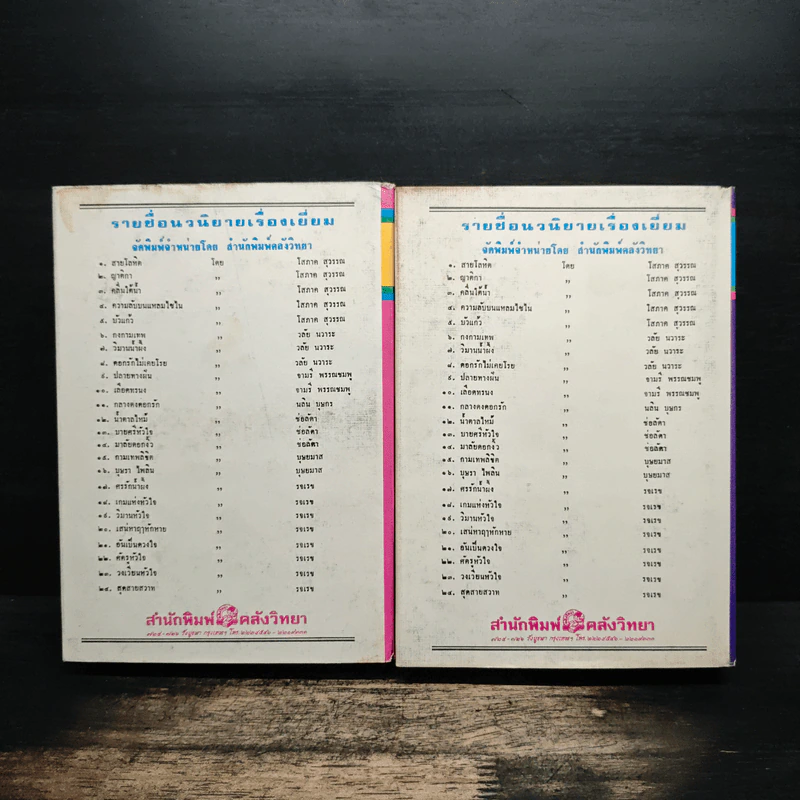 รายชื่อนวนิยายเรื่องเยี่ยม
จัดพิมพ์จำหน่ายโดย สำนักพิมพ์คลังวิทยา
๑. สายโลหิต โดย โสภาค สุวรรณ
๒. ญาติกา ,, โสภาค สุวรรณ
๓. คลื่นใต้น้ำ ,, โสภาค สุวรรณ
๔. ความลับบนแหลมไซไน ,, โสภาค สุวรรณ
๕. บัวแก้ว ,, โสภาค สุวรรณ
๖. กงกามเทพ ,, วลัย นวาระ
๗. วิมานน้ำผึ้ง ,, วลัย นวาระ
๘. ดอกรักไม่เคยโรย ,, วลัย นวาระ
๙. ปลายทางฝัน ,, จามรี พรรณชมพู
๑๐. เลือดทรนง ,, จามรี พรรณชมพู
๑๑. กลางดงดอกรัก ,, นลิน บุษกร
๑๒. น้ำตาลไหม้ ,, ช่อลัดา
๑๓. บายศรีหัวใจ ,, ช่อลัดา
๑๔. มาลัยดอกงิ้ว ,, ช่อลัดา
๑๕. กามเทพลิขิต ,, บุษยมาส
๑๖. บุษรา ไพลิน ,, บุษยมาส
๑๗. ศรรักน้ำผึ้ง ,, รจเรข
๑๘. เกมแห่งหัวใจ ,, รจเรข
๑๙. วิมานหัวใจ ,, รจเรข
๒๐. เสน่หาฤๅหักหาย ,, รจเรข
๒๑. อันเป็นดวงใจ ,, รจเรข
๒๒. ศัตรูหัวใจ ,, รจเรข
๒๓. วงเวียนหัวใจ ,, รจเรข
๒๔. สุดสายสวาท ,, รจเรข
สำนักพิมพ์ คลังวิทยา
รายชื่อนวนิยายเรื่องเยี่ยม
จัดพิมพ์จำหน่ายโดย สำนักพิมพ์คลังวิทยา
๑. สายโลหิต โดย โสภาค สุวรรณ
๒. ญาติกา ,, โสภาค สุวรรณ
๓. คลื่นใต้น้ำ ,, โสภาค สุวรรณ
๔. ความลับบนแหลมไซไน ,, โสภาค สุวรรณ
๕. บัวแก้ว ,, โสภาค สุวรรณ
๖. กงกามเทพ ,, วลัย นวาระ
๗. วิมานน้ำผึ้ง ,, วลัย นวาระ
๘. ดอกรักไม่เคยโรย ,, วลัย นวาระ
๙. ปลายทางฝัน ,, จามรี พรรณชมพู
๑๐. เลือดทรนง ,, จามรี พรรณชมพู
๑๑. กลางดงดอกรัก ,, นลิน บุษกร
๑๒. น้ำตาลไหม้ ,, ช่อลัดา
๑๓. บายศรีหัวใจ ,, ช่อลัดา
๑๔. มาลัยดอกงิ้ว ,, ช่อลัดา
๑๕. กามเทพลิขิต ,, บุษยมาส
๑๖. บุษรา ไพลิน ,, บุษยมาส
๑๗. ศรรักน้ำผึ้ง ,, รจเรข
๑๘. เกมแห่งหัวใจ ,, รจเรข
๑๙. วิมานหัวใจ ,, รจเรข
๒๐. เสน่หาฤๅหักหาย ,, รจเรข
๒๑. อันเป็นดวงใจ ,, รจเรข
๒๒. ศัตรูหัวใจ ,, รจเรข
๒๓. วงเวียนหัวใจ ,, รจเรข
๒๔. สุดสายสวาท ,, รจเรข
สำนักพิมพ์ คลังวิทยา